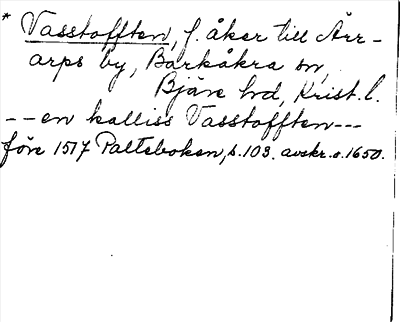 * Vasstofften, f. åker till Ärr-
arps by, Barkåkra sn,
Bjäre hd, Krist. l.
-- en kalliss Vasstofften ---
före 1517 Palteboken, s. 103. avskr. o. 1650.